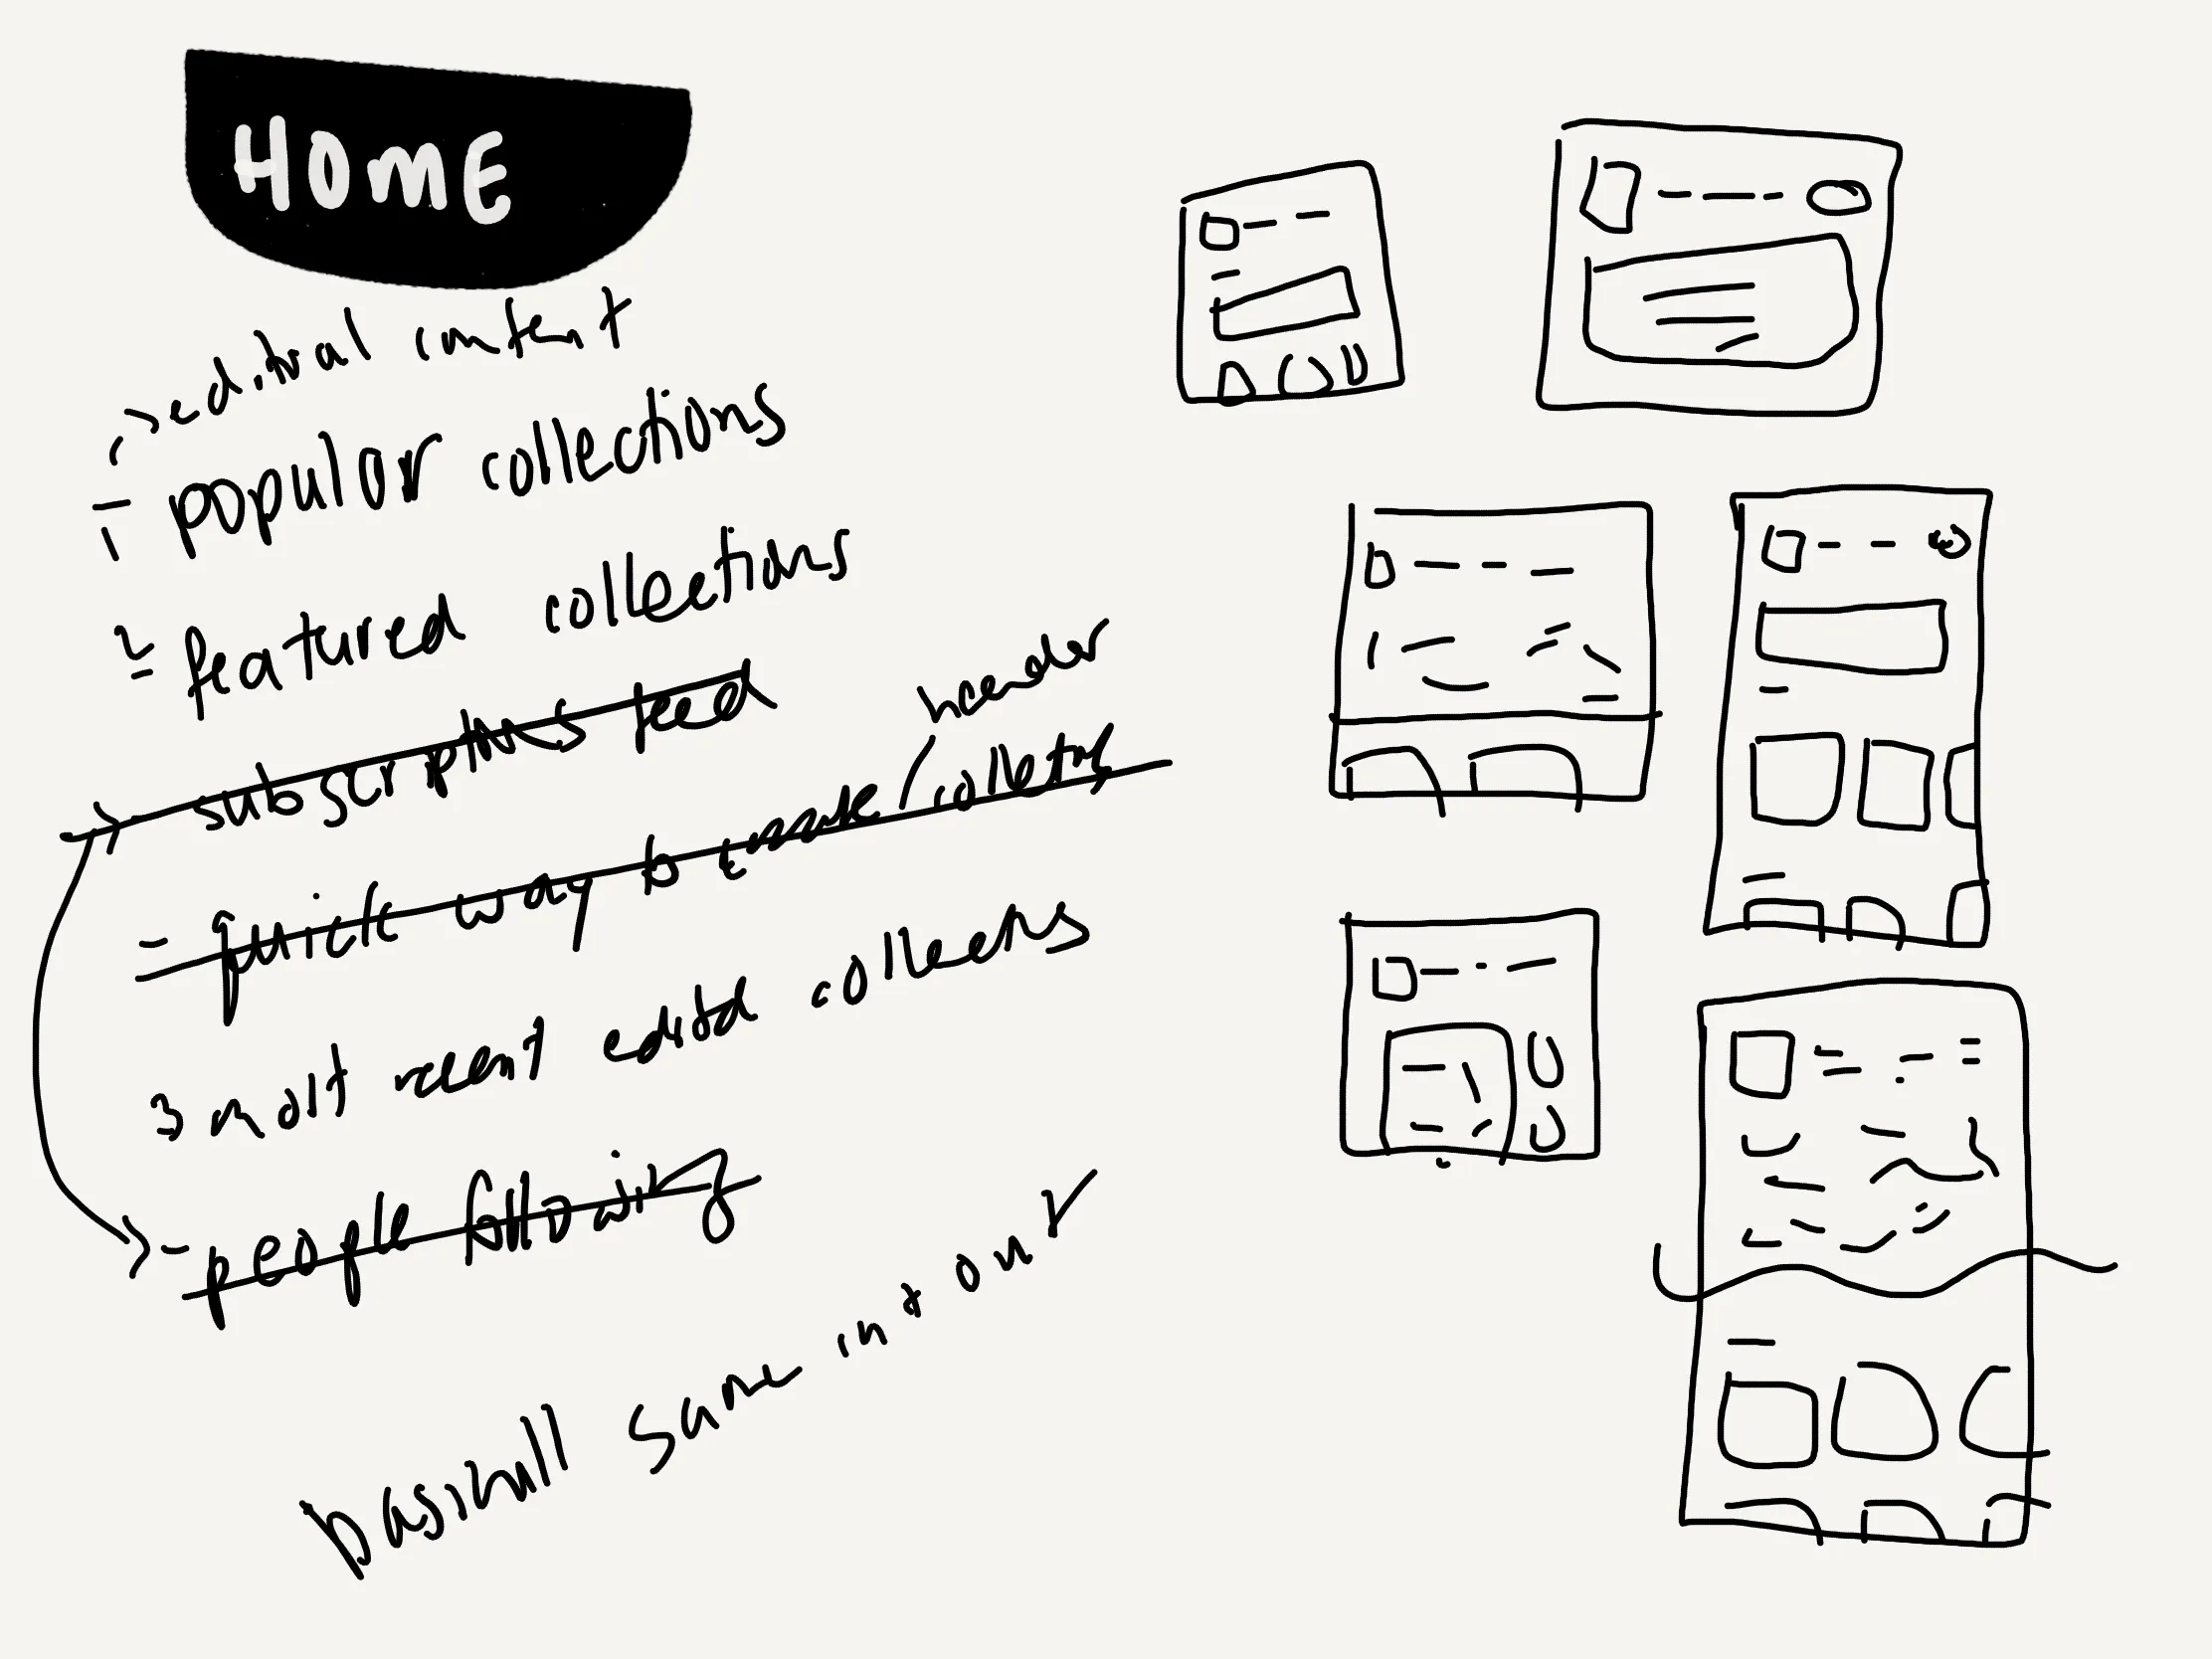 HOME
editorial content
1 - popular collections
2 - featured collections
subscriptions feed
header
- quick way to create collection
3 most recent edited collections
- people following
same int our